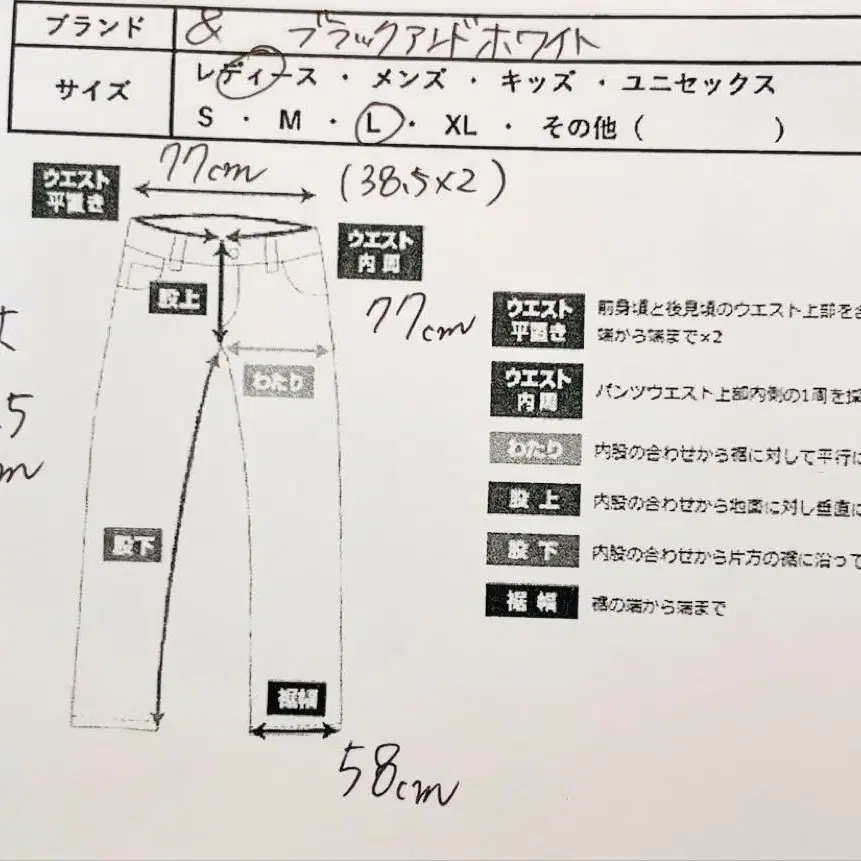 ブランド & ブラックアンドホワイト
サイズ レディース ・ メンズ ・ キッズ ・ ユニセックス
S ・ M ・ L ・ XL ・ その他 ( )
77cm (38.5×2)
ウエスト
平置き
ウエスト
内周
77cm
股上
わたり
丈
.5
股下
裾幅
58cm
ウエスト
平置き
前身頃と後見頃のウエスト上部を
端から端まで×2
ウエスト
内周
パンツウエスト上部内側の1周を採
わたり
内股の合わせから裾に対して平行に
股上
内股の合わせから地面に対し垂直に
股下
内股の合わせから片方の裾に沿って
裾幅
裾の端から端まで